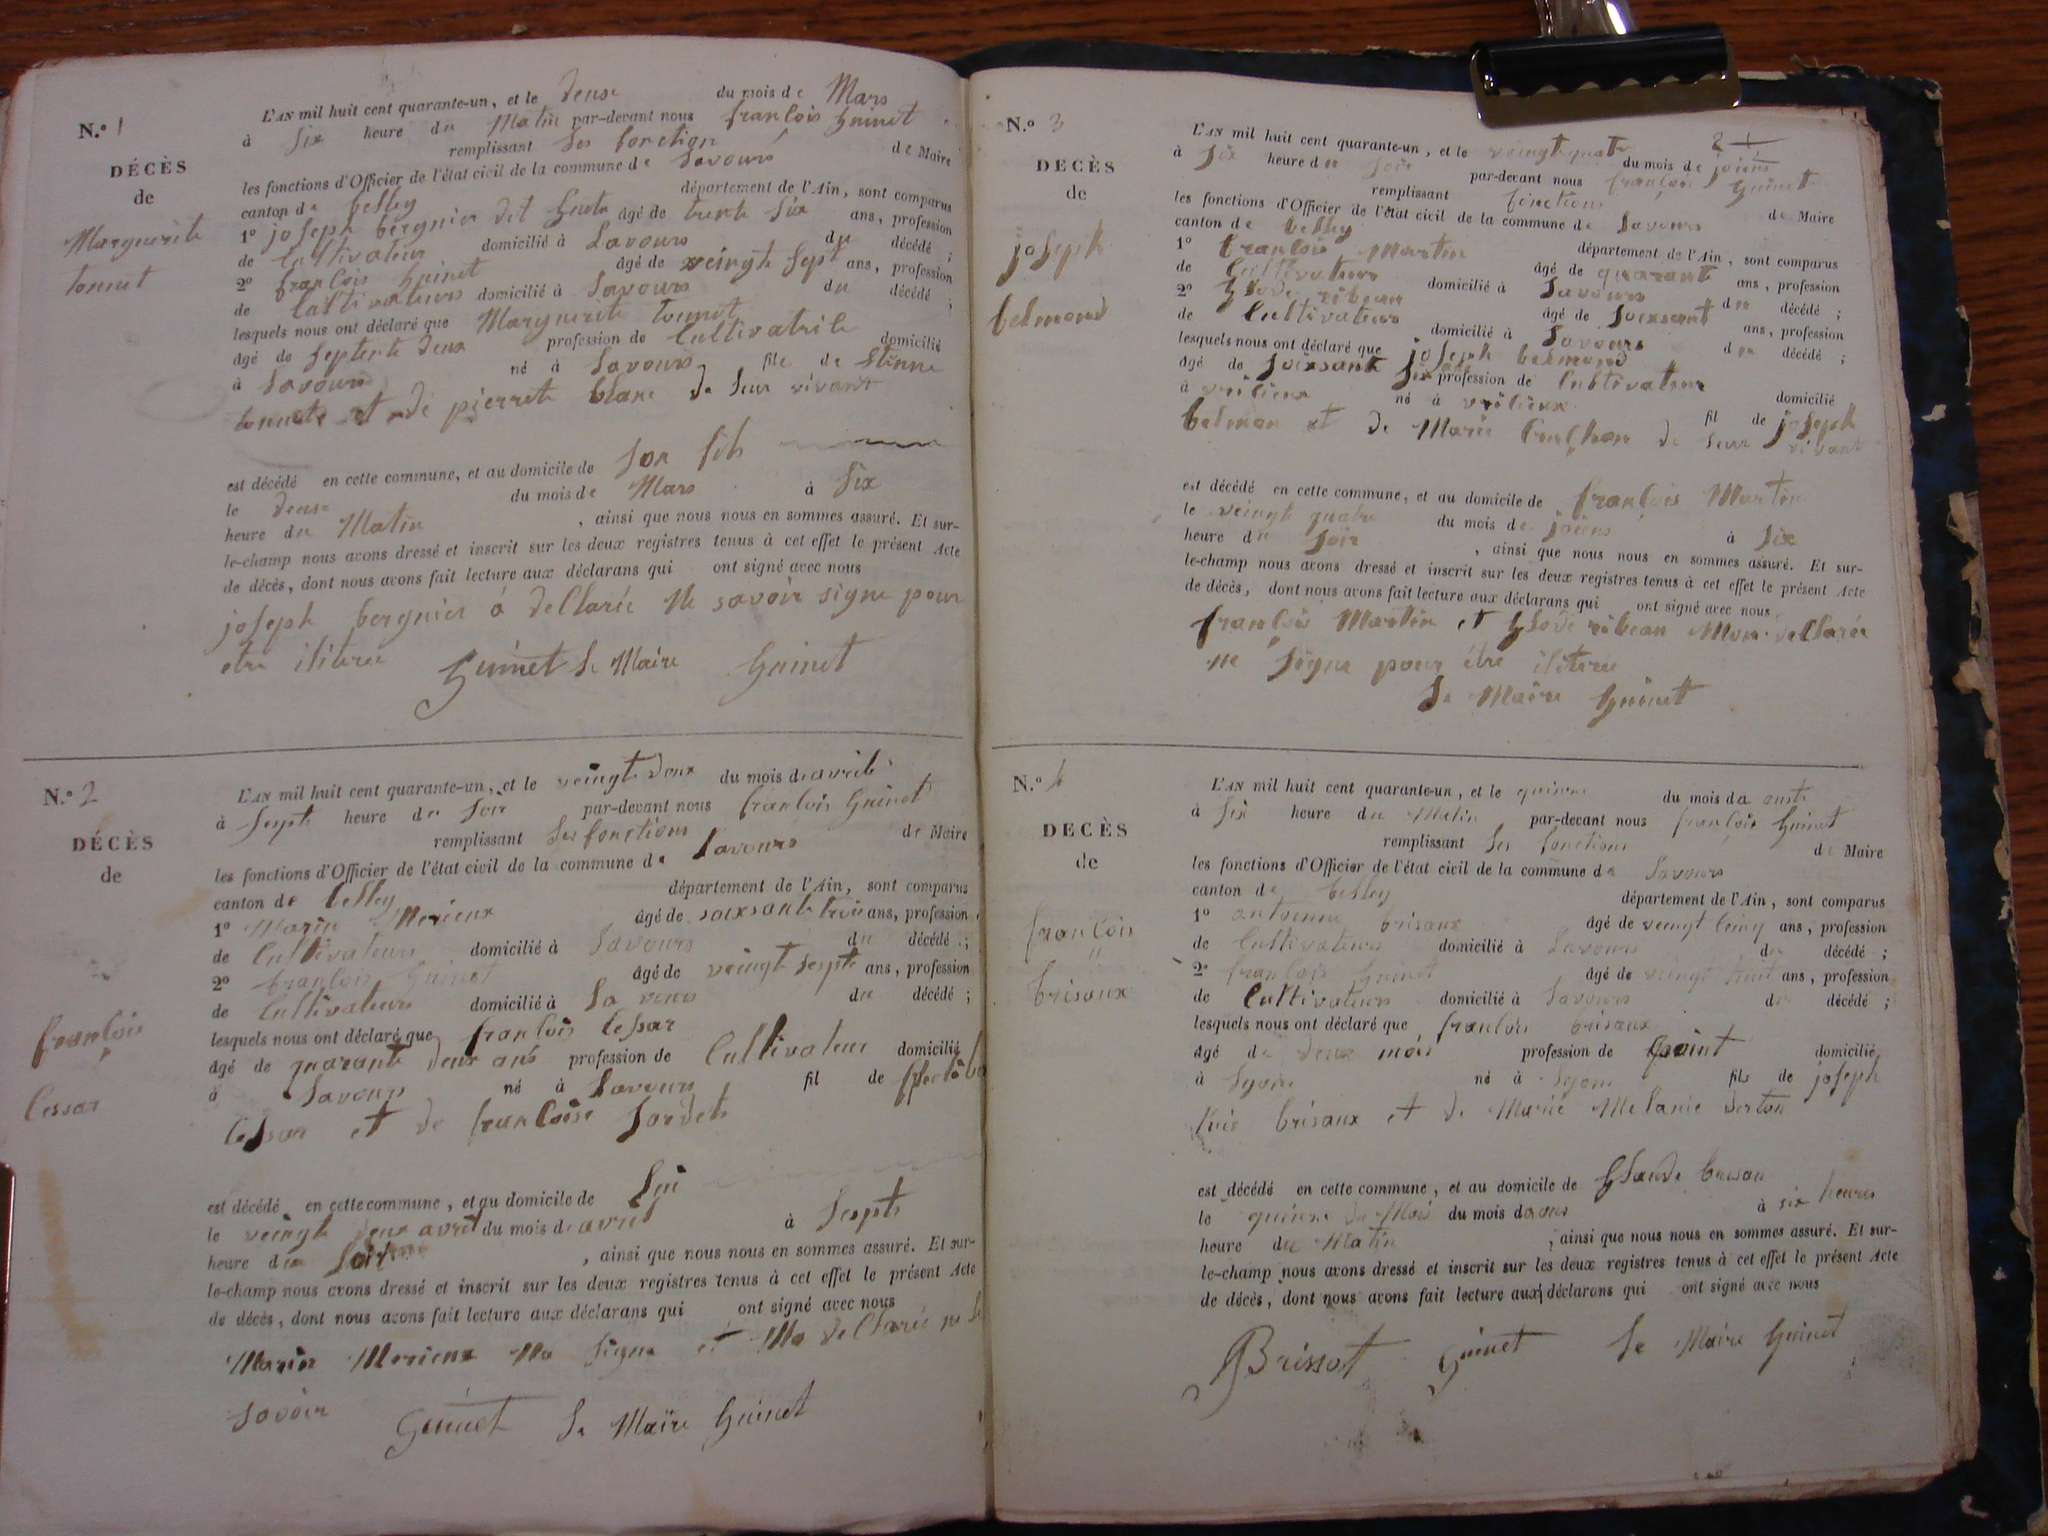 N.° 1
DÉCÈS
de
Marguerite
tonnet
L'AN mil huit cent quarante-un, et le deux du mois de Mars
à six heure du Matin par-devant nous françois guinet
remplissant ses fonction de Maire
les fonctions d'Officier de l'état civil de la commune de Savours
canton de belley département de l'Ain, sont comparus
1° joseph bergnier dit âgé de trente six ans, profession
de Cultivateur domicilié à Savours du décédé ;
2° françois guinet âgé de veingte sept ans, profession
de Cultivateurs domicilié à Savours du décédé ;
lesquels nous ont déclaré que Marguerite tonnet
âgé de septente deux profession de Cultivatrice domicilié
à Savours né à Savours file de Etinne
tonnete et de pierrete blanc de leur vivant
est décédé en cette commune, et au domicile de son fils
le deux du mois de Mars à six
heure du Matin , ainsi que nous nous en sommes assuré. Et sur-
le-champ nous avons dressé et inscrit sur les deux registres tenus à cet effet le présent Acte
de décès, dont nous avons fait lecture aux déclarans qui ont signé avec nous
joseph bergnier à declarée ne savoir signe pour
etre iliterée Guinet Le Maire Guinet
N.° 2
DÉCÈS
de
françois
Cessar
L'AN mil huit cent quarante-un, et le veingte deux du mois de avrile
à septe heure du soir par-devant nous françois guinet
remplissant ses fonctions de Maire
les fonctions d'Officier de l'état civil de la commune de Savours
canton de belley département de l'Ain, sont comparus
1° Marin Merieux âgé de soixsante trois ans, profession
de Cultivateurs domicilié à Savours du décédé ;
2° françois Guinet âgé de veingt septe ans, profession
de Cultivateurs domicilié à Savours du décédé ;
lesquels nous ont déclaré que françois Cessar
âgé de quarante deux ans profession de Cultivateur domicilié
à Savours né à Savours fil de
Cessar et de françoise sordete
est décédé en cette commune, et au domicile de lui
le veingte deux avril du mois de avril à septe
heure du soir , ainsi que nous nous en sommes assuré. Et sur-
le-champ nous avons dressé et inscrit sur les deux registres tenus à cet effet le présent Acte
de décès, dont nous avons fait lecture aux déclarans qui ont signé avec nous
Marin Merieux Na signe et Ma declarée ne
savoir Guinet Le Maire Guinet
N.° 3
DECÈS
de
joseph
belmond
L'AN mil huit cent quarante-un, et le veingt quatre du mois de joiens
à six heure du soir par-devant nous françois guinet
remplissant fonctions de Maire
les fonctions d'Officier de l'état civil de la commune de Savours
canton de belley département de l'Ain, sont comparus
1° françois Martin âgé de quarant ans, profession
de Cultivateurs domicilié à Savours du décédé ;
2° glode ribeau âgé de soixsant ans, profession
de Cultivateurs domicilié à Savours du décédé ;
lesquels nous ont déclaré que joseph belmond
âgé de soixsante six profession de Cultivateur domicilié
à né à fil de joseph
belmon et de Marie de leur vivant
est décédé en cette commune, et au domicile de françois Martin
le veingt quatre du mois de joiens à six
heure du soir , ainsi que nous nous en sommes assuré. Et sur-
le-champ nous avons dressé et inscrit sur les deux registres tenus à cet effet le présent Acte
de décès, dont nous avons fait lecture aux déclarans qui ont signé avec nous
françois Martin et glode ribeau Mon declarée
ne signe pour étre iliterée
Le Maire Guinet
N.° 4
DECÈS
de
françois
brisaux
L'AN mil huit cent quarante-un, et le quinze du mois de auste
à six heure du Matin par-devant nous françois guinet
remplissant ses fonctions de Maire
les fonctions d'Officier de l'état civil de la commune de Savours
canton de belley département de l'Ain, sont comparus
1° antoinne brisaux âgé de veingt cinq ans, profession
de Cultivateurs domicilié à Savours du décédé ;
2° françois guinet âgé de veingt huit ans, profession
de Cultivateurs domicilié à Savours du décédé ;
lesquels nous ont déclaré que françois brisaux
âgé de deux mois profession de point domicilié
à Lyon né à Lyon fils de joseph
brisaux et de Marie Melanie derton
est décédé en cette commune, et au domicile de glaude brison
le quinze du Mois du mois de aous à six heures
heure du Matin , ainsi que nous nous en sommes assuré. Et sur-
le-champ nous avons dressé et inscrit sur les deux registres tenus à cet effet le présent Acte
de décès, dont nous avons fait lecture aux déclarans qui ont signé avec nous
Brissot Guinet Le Maire Guinet